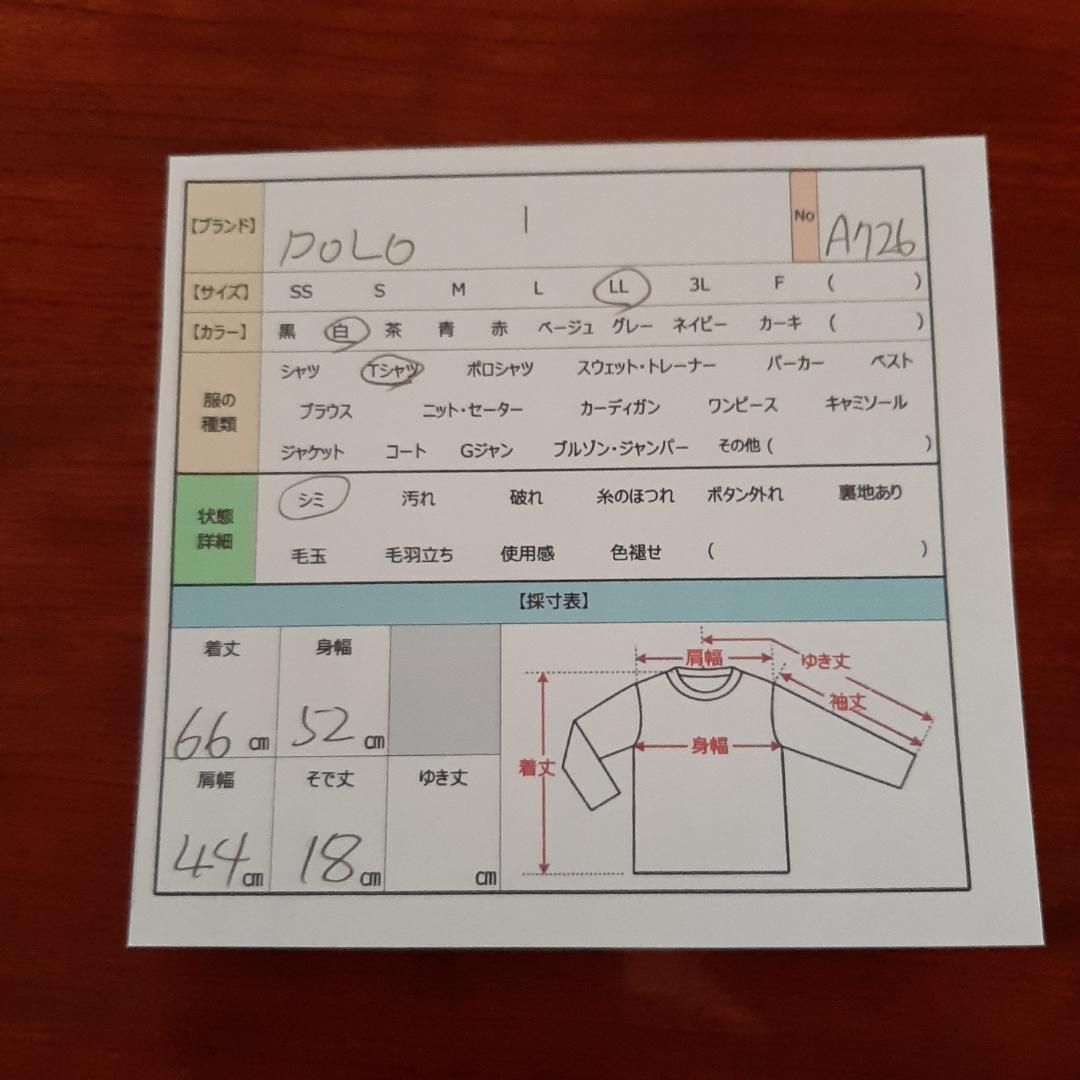 【ブランド】 POLO | No A726
【サイズ】 SS S M L LL 3L F ( )
【カラー】 黒 白 茶 青 赤 ベージュ グレー ネイビー カーキ ( )
服の種類
シャツ Tシャツ ポロシャツ スウェット・トレーナー パーカー ベスト
ブラウス ニット・セーター カーディガン ワンピース キャミソール
ジャケット コート Gジャン ブルゾン・ジャンパー その他 ( )
状態詳細
シミ 汚れ 破れ 糸のほつれ ボタン外れ 裏地あり
毛玉 毛羽立ち 使用感 色褪せ ( )
【採寸表】
着丈 身幅
66 cm 52 cm
肩幅 そで丈 ゆき丈
44 cm 18 cm cm
肩幅 ゆき丈
袖丈
身幅
着丈